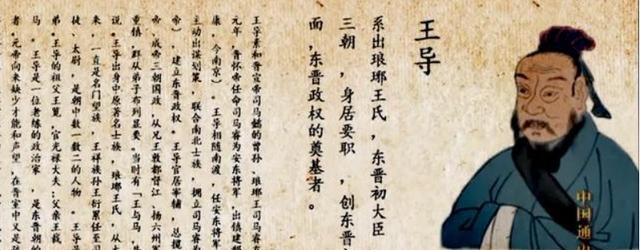 王导
系出琅琊王氏，东晋初大臣
三朝，身居要职，创东晋
面，东晋政权的奠基者。
王导素和晋宣帝司马懿的曾孙、琅琊王司马睿
元年，晋怀帝任命司马睿为安东将军，出镇建邺
康，今南京）。王导相随南渡，任安东将军
主动出谋划策，联合南北士族，拥立司马睿
帝），建立东晋政权。王导官居宰辅，总揽
帝、成帝三朝国政，从兄王敦都督江、扬六州
重镇，群从弟子布列显要。当时有「王与马，
说。王导出身中原著名士族，琅琊王氏，从
来，一直是名门望族，王祥族孙王衍累任至司
徒、太尉，是朝中数一数二的人物。王导是
弟。王导的祖父王览，官光禄大夫；父亲王裁
马。王导是一位老练的政治家，是东晋朝的
者。元帝向来缺少才能和声望，在晋室中又是
中国通